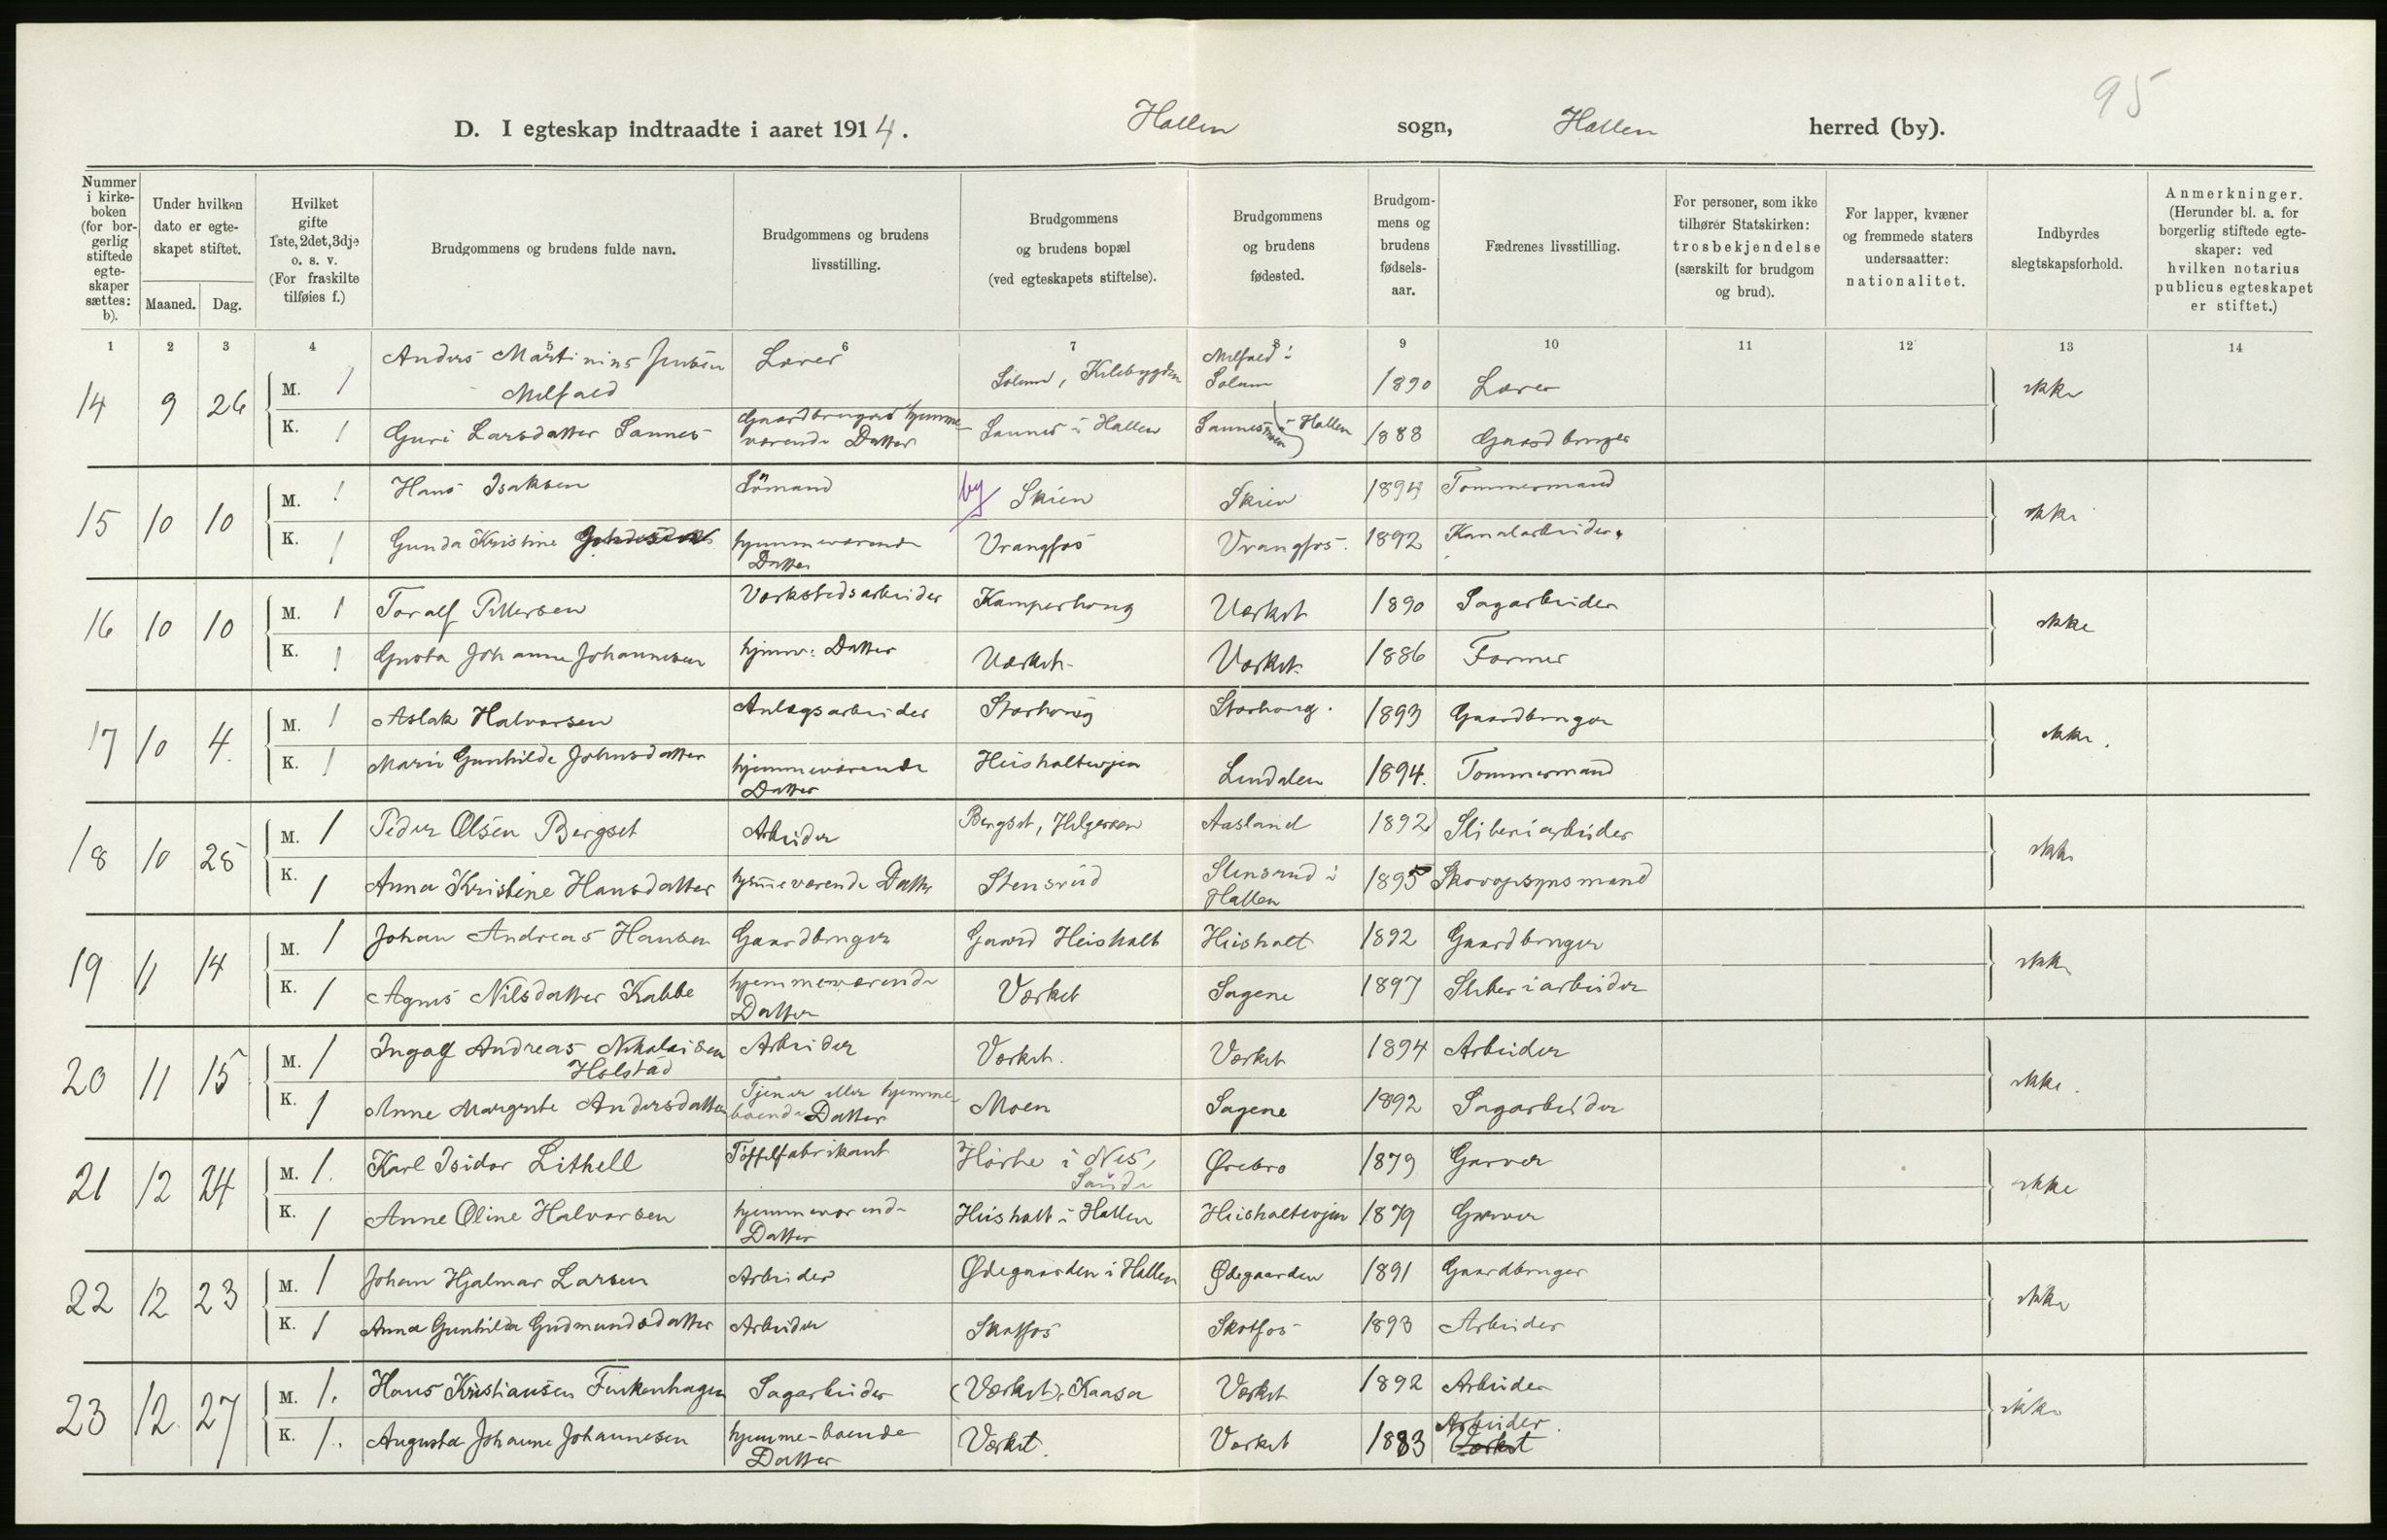 95
D. I egteskap indtraadte i aaret 1914. Hollen sogn, Hollen herred (by).
Nummer i kirkeboken (for borgerlig stiftede egteskaper sættes: b).
Under hvilken dato er egteskapet stiftet.
Maaned. Dag.
Hvilket gifte 1ste, 2det, 3dje o. s. v. (For fraskilte tilføies f.)
Brudgommens og brudens fulde navn.
Brudgommens og brudens livsstilling.
Brudgommens og brudens bopæl (ved egteskapets stiftelse).
Brudgommens og brudens fødested.
Brudgommens og brudens fødselsaar.
Fædrenes livsstilling.
For personer, som ikke tilhører Statskirken: trosbekjendelse (særskilt for brudgom og brud).
For lapper, kvæner og fremmede staters undersaatter: nationalitet.
Indbyrdes slegtskapsforhold.
Anmerkninger. (Herunder bl. a. for borgerlig stiftede egteskaper: ved hvilken notarius publicus egteskapet er stiftet.)
1 2 3 4 5 6 7 8 9 10 11 12 13 14
14 9 26 M. 1 Anders Martinius Jensen Melfald Lærer Solum, Kilebygden Melfald i Solum 1890 Lærer ikke
K. 1 Guri Larsdatter Sannes Gaardbruger hjemmeværende Datter Sannes i Hollen Sannesmoen i Hollen 1888 Gaardbruger
15 10 10 M. 1 Hans Isaksen Sömand by Skien Skien 1894 Tømmermand ikke
K. 1 Gunda Kristine hjemmeværende Datter Vrangfos Vrangfos. 1892 Kanalarbeider.
16 10 10 M. 1 Toralf Pettersen Værkstedsarbeider Kamperhoug Værket 1890 Sagarbeider ikke
K. 1 Gusta Johanne Johannesen hjemv. Datter Værket Værket 1886 Former
17 10 4. M. 1 Aslak Halvorsen Anlægsarbeider Storhoug Storhoug. 1893 Gaardbruger ikke.
K. 1 Marie Gunhilde Johnsdatter hjemmeværende Datter Heisholteien Lindalen 1894. Tømmermand
18 10 25 M. 1 Peder Olsen Bergset Arbeider Bergset, Helgeroen Aasland 1892 Sliberiarbeider ikke
K. 1 Anna Kristine Hansdatter hjemmeværende Datter Stensrud Stensrud i Hollen 1895 Skovopsynsmand
19 11 14 M. 1 Johan Andreas Hansen Gaardbruger Gaard Heisholt Heisholt 1892 Gaardbruger ikke
K. 1 Agnes Nilsdatter Kabbe hjemmeværende Datter Værket Sagene 1897 Sliberiarbeider
20 11 15 M. 1 Ingolf Andreas Nikolaisen Holstad Arbeider Værket. Værket 1894 Arbeider ikke.
K. 1 Anne Margrete Andersdatter Tjener eller hjemmeboende Datter Moen Sagene 1892 Sagarbeider
21 12 24 M. 1. Karl Isidor Lithell Töffelfabrikant i Nes, Sande Ørebro 1879 Garver ikke
K. 1 Anne Oline Halvorsen hjemmeværende Datter Heisholt i Hollen Heisholteien 1879 Garver
22 12 23 M. 1 Johan Hjalmar Larsen Arbeider Ødegaarden i Hollen Ødegaarden 1891 Gaardbruger ikke
K. 1 Anna Gunhilda Gudmundsdatter Arbeider Skotfos Skotfos 1893 Arbeider
23 12. 27 M. 1. Hans Kristiansen Finkenhagen Sagarbeider (Værket), Kaasa Værket 1892 Arbeider ikke
K. 1. Augusta Johanne Johannesen hjemme-boende Datter Værket. Værket 1883 Arbeider. Værket